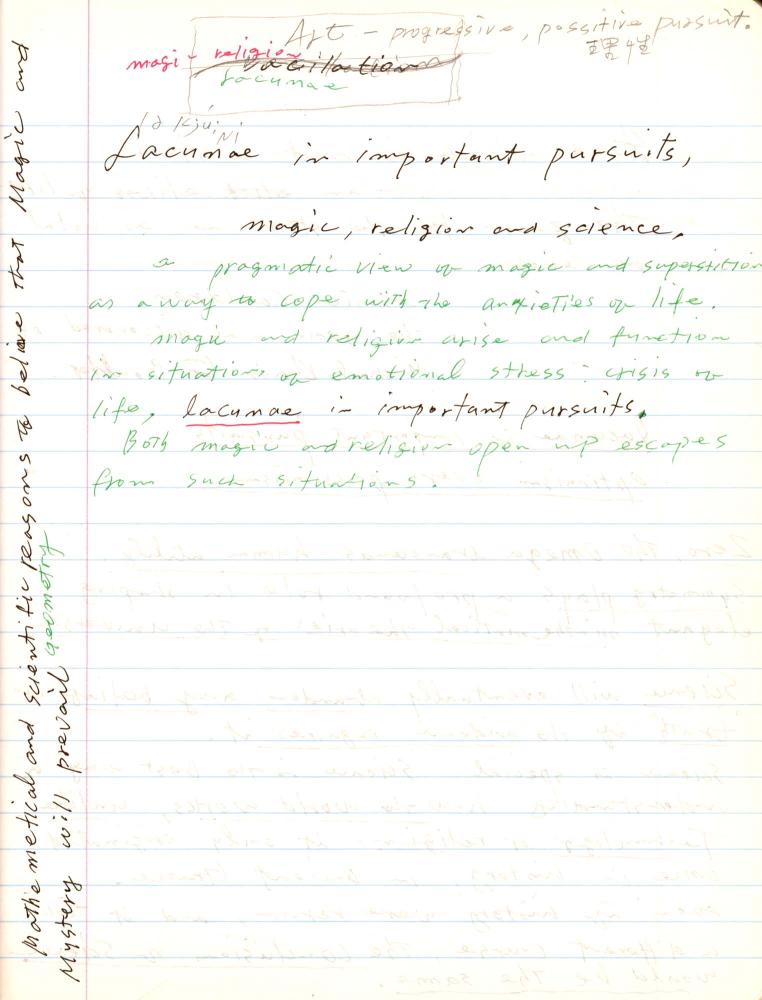 Art - progressive, possitive pursuit.
理性
magi - religion
Vacillation
Lacunae
Lacunae in important pursuits,
magic, religion and science.
a pragmatic view of magic and superstition
as a way to cope with the anxieties of life.
magic and religion arise and function
in situations of emotional stress: crisis of
life, lacunae in important pursuits.
Both magic and religion open up escapes
from such situations.
Mathemetical and scientific reasons to believe that Magic and
geometry
Mystery will prevail